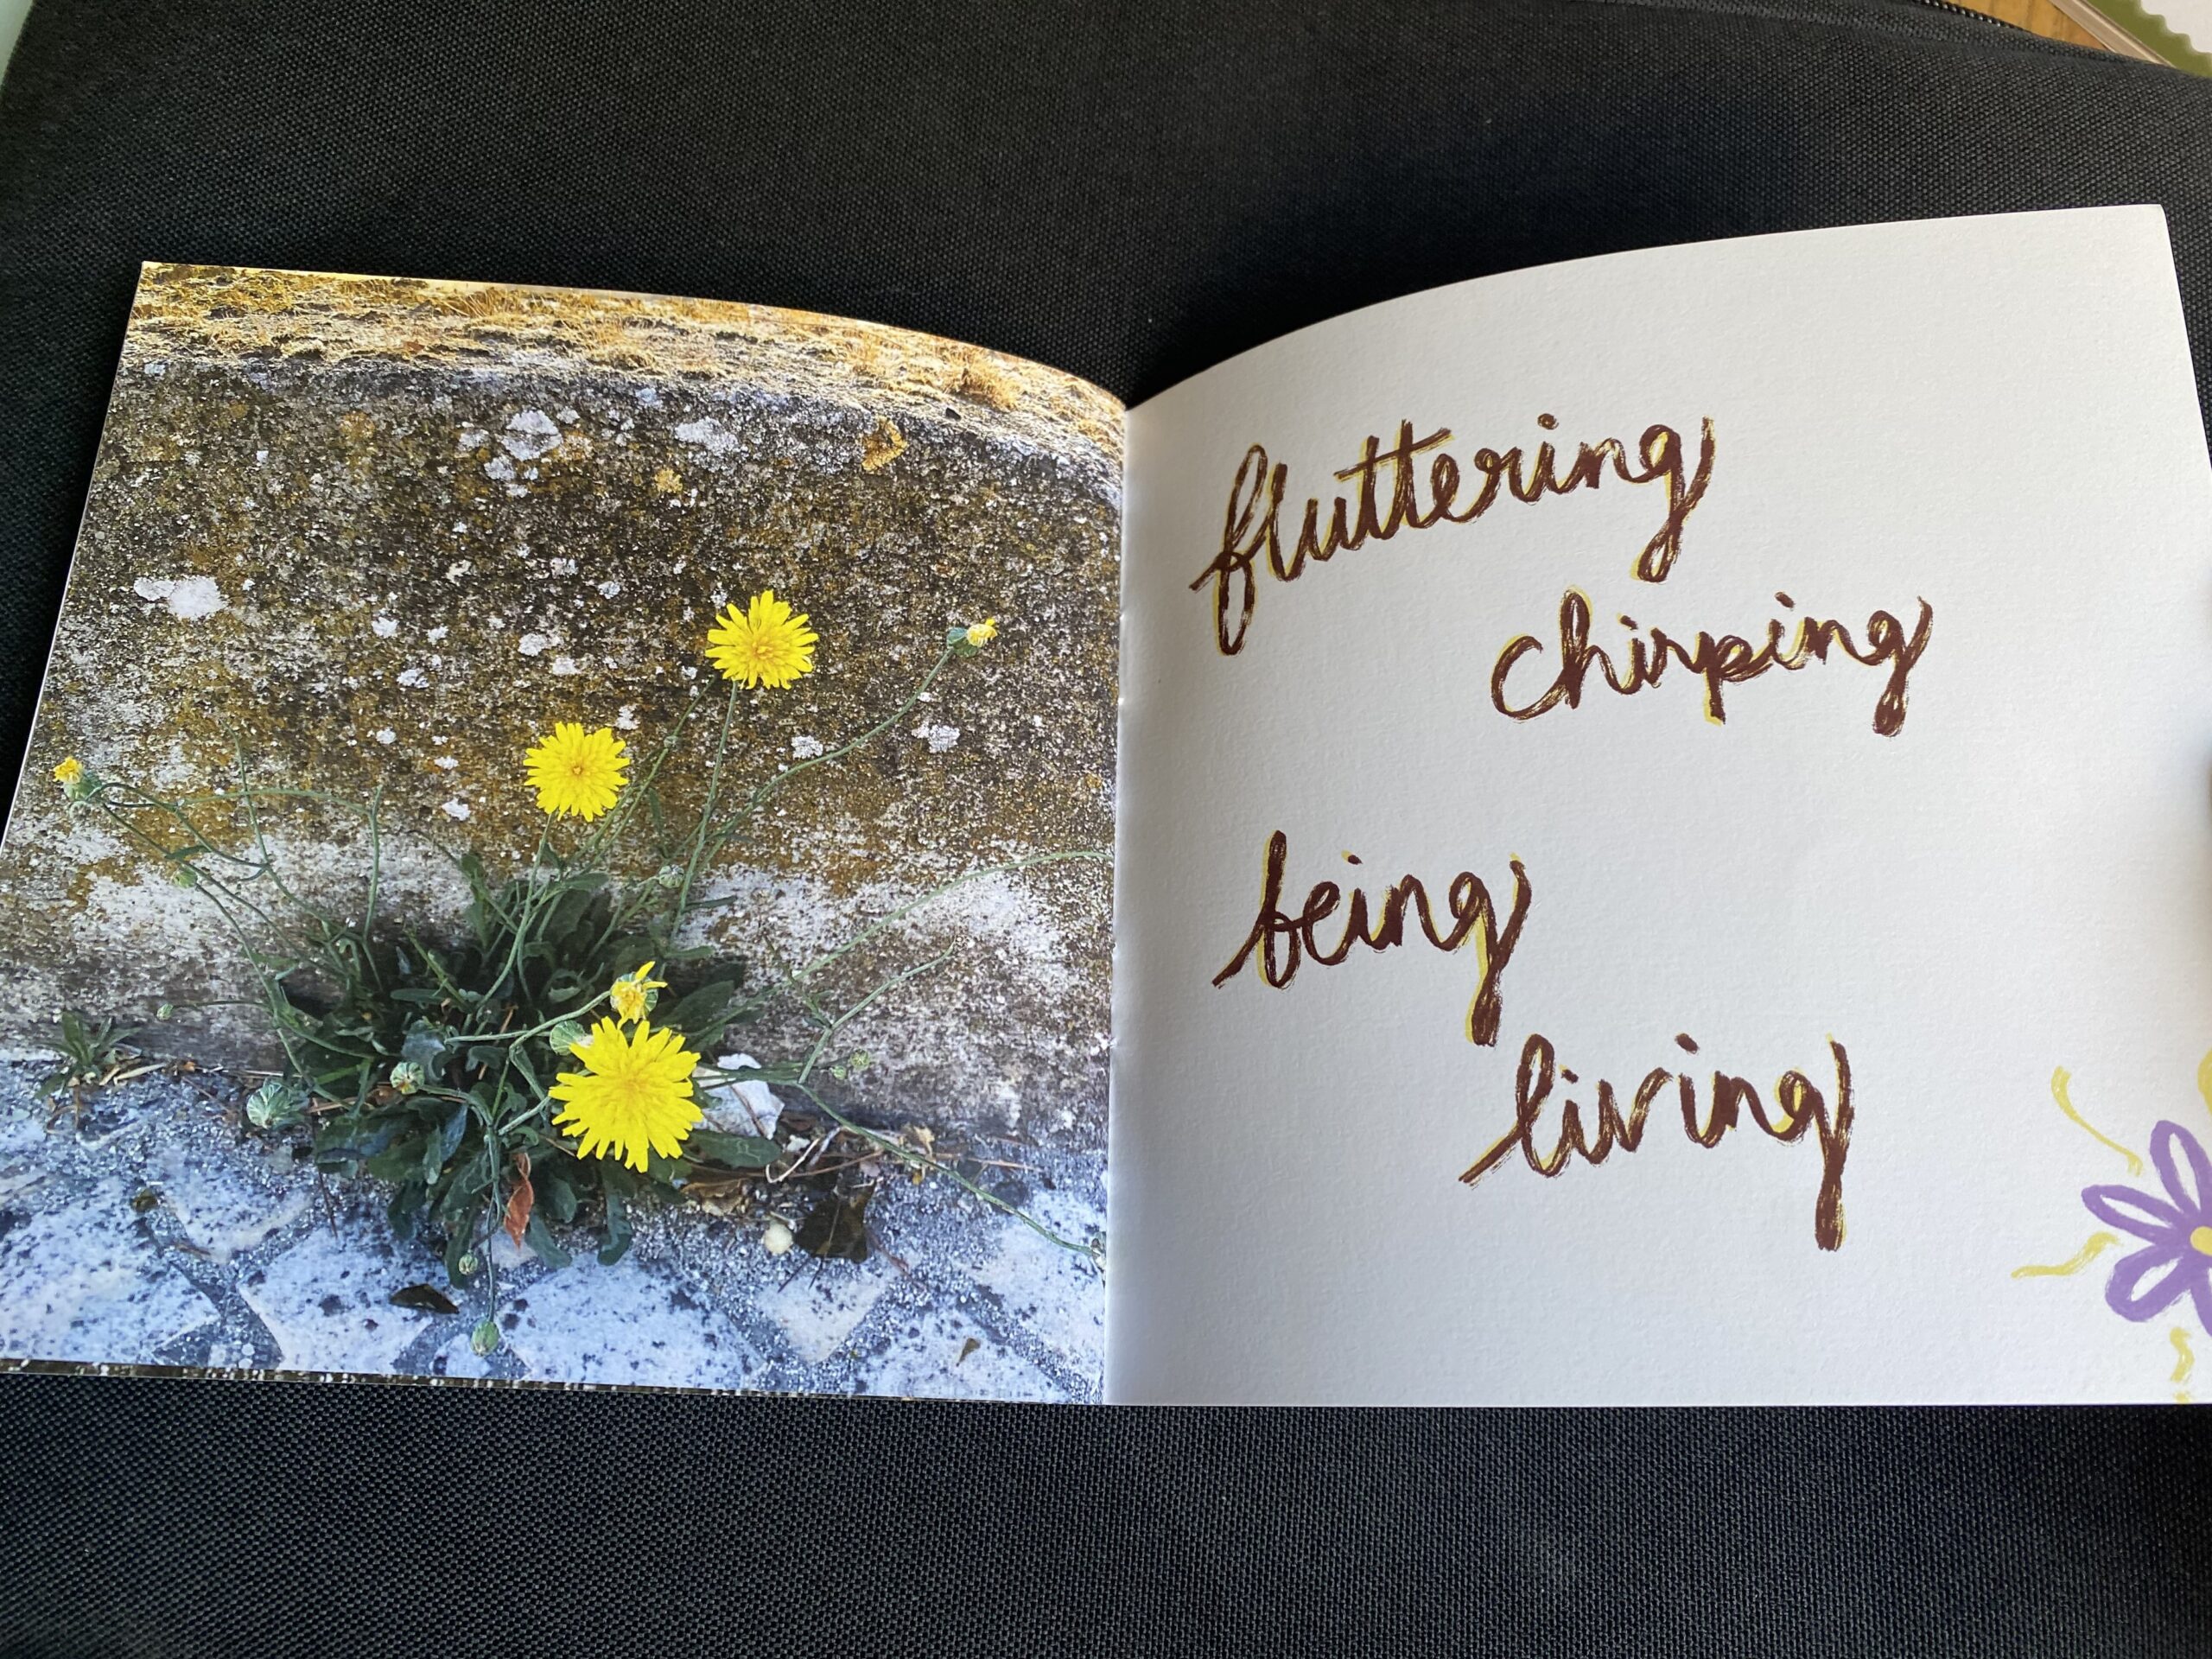 fluttering
chirping
being
living